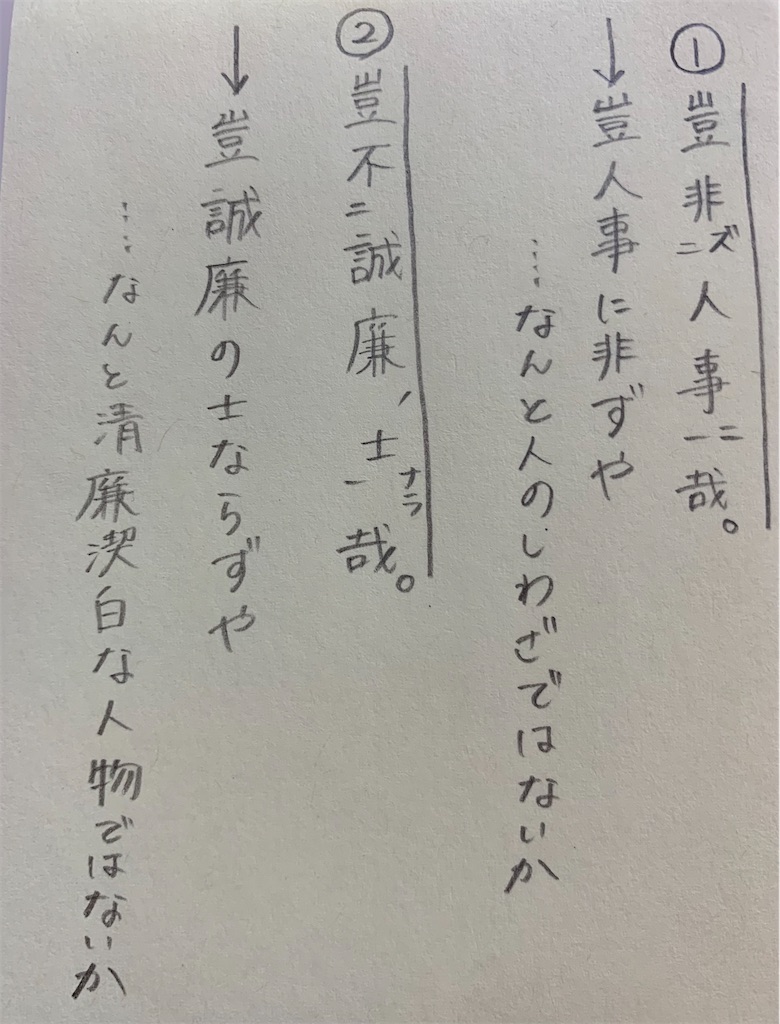 ① 豈非ズ二人事ニ一哉。
↓豈人事に非ずや
……なんと人のしわざではないか
② 豈不二誠廉ノ士ナラ一哉。
↓豈誠廉の士ならずや
……なんと清廉潔白な人物ではないか